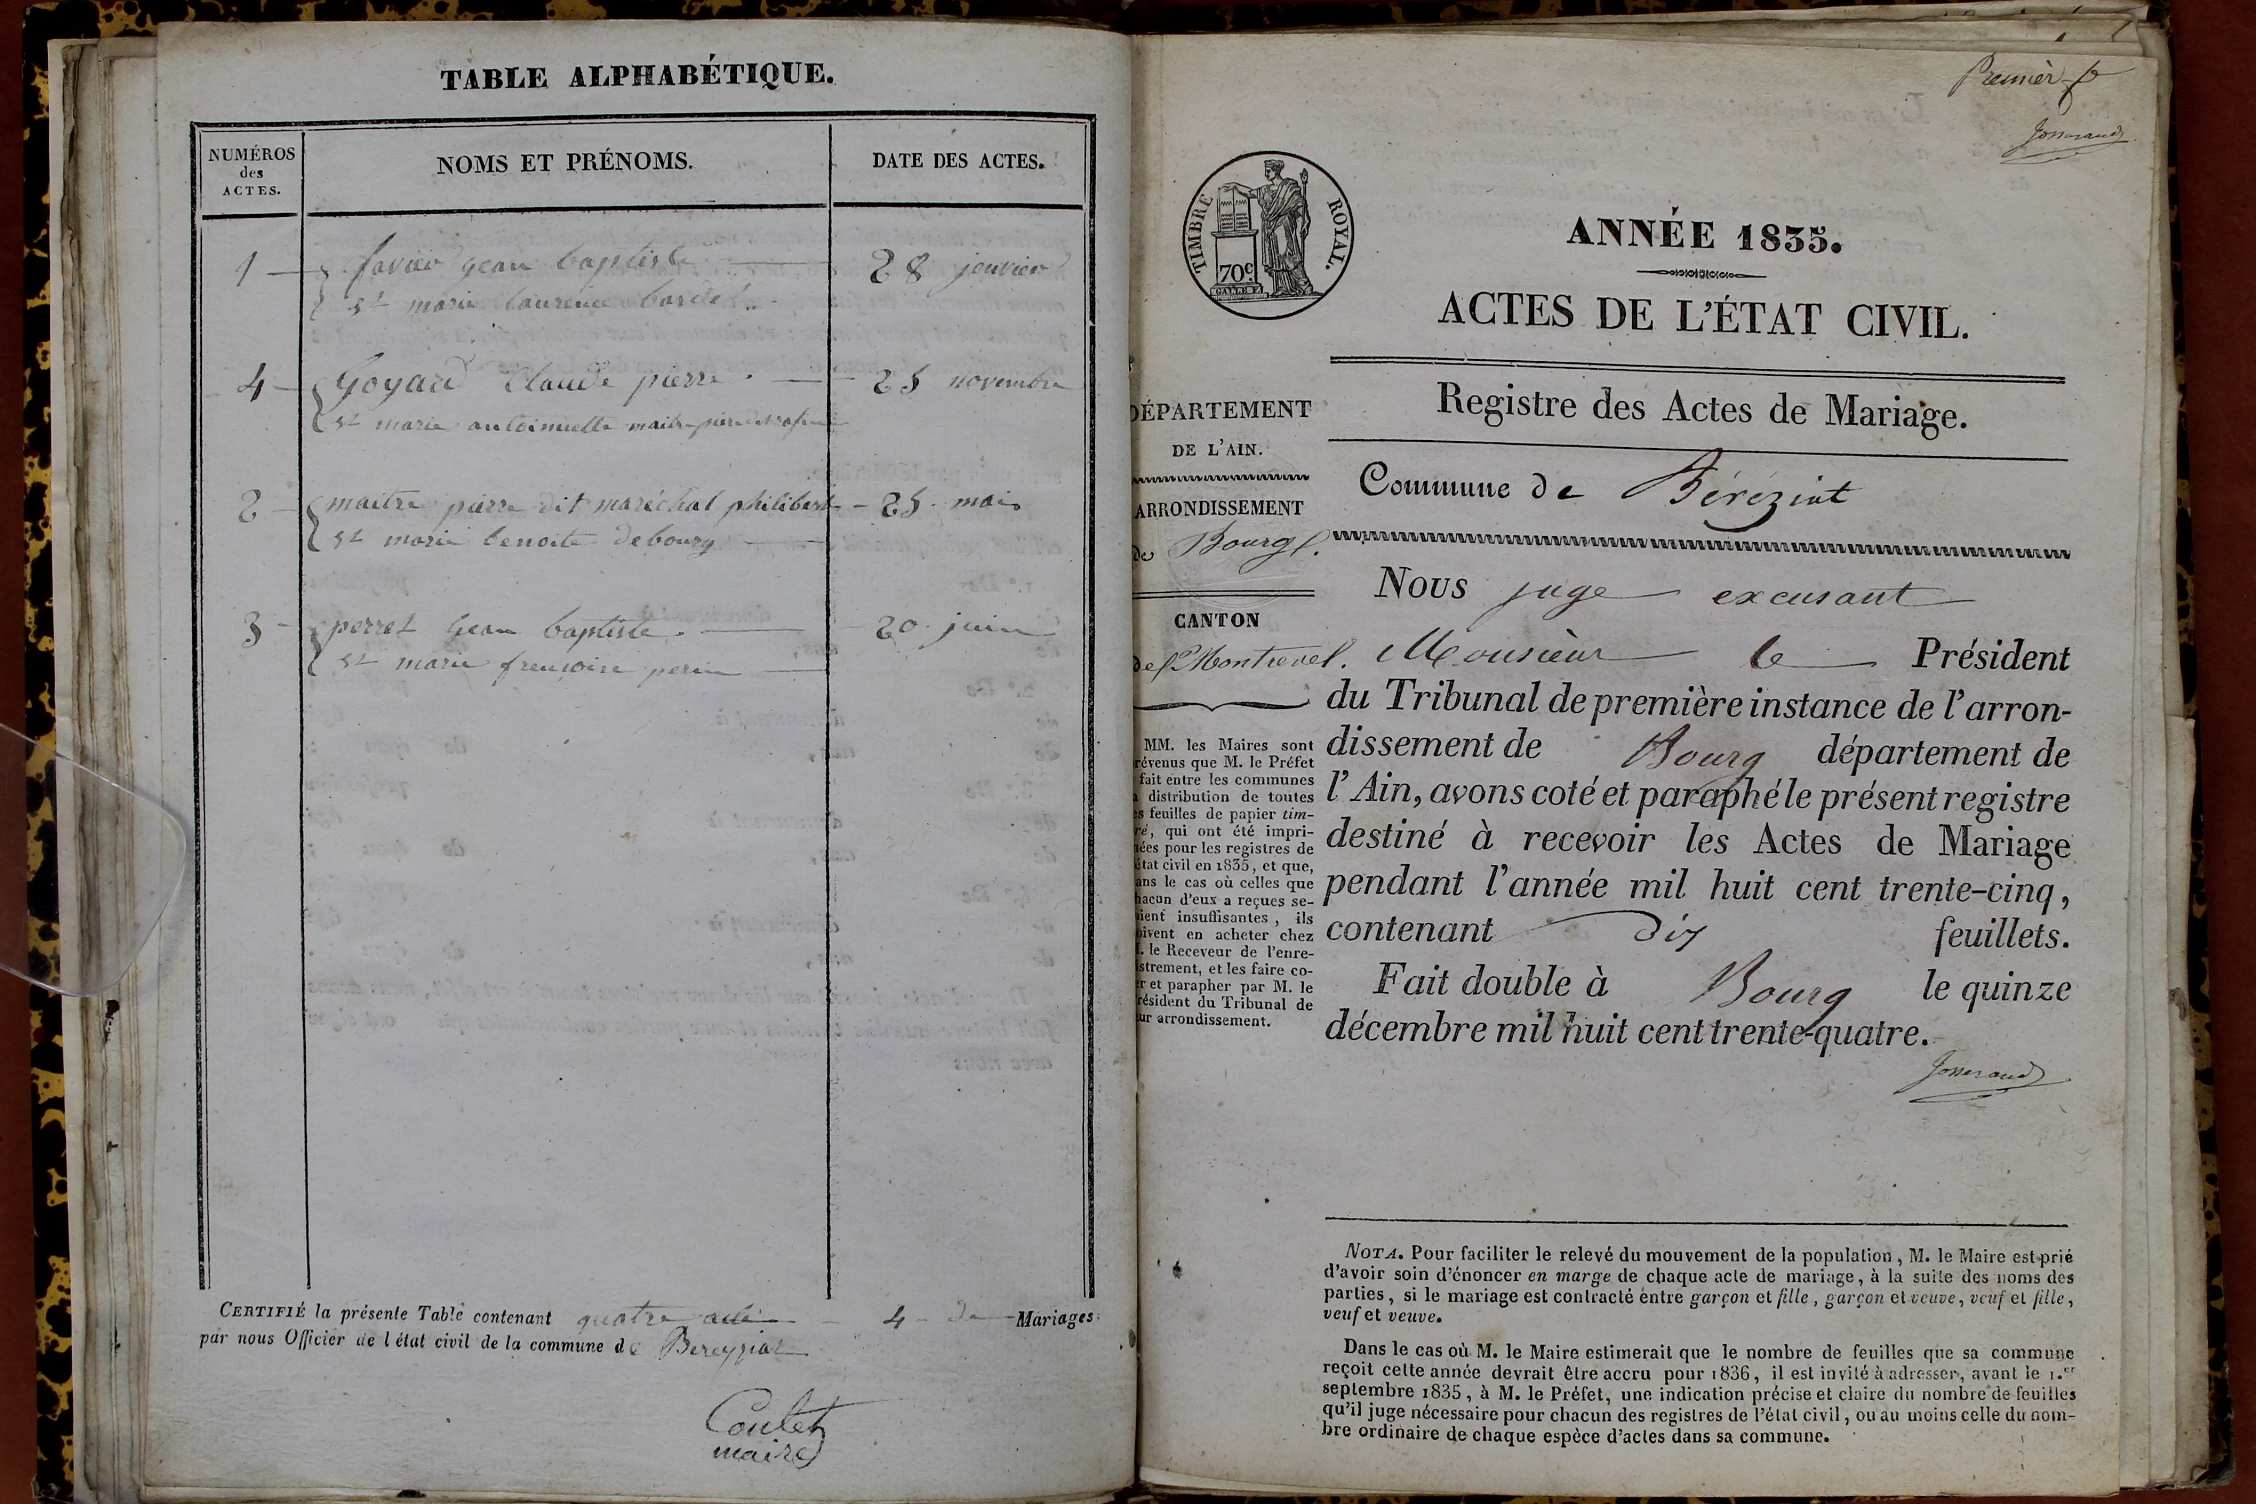 TABLE ALPHABÉTIQUE.
NUMÉROS
des
ACTES.
NOMS ET PRÉNOMS.
DATE DES ACTES.
1 favier jean baptiste 28 jenvier
et marie laurence bardet
4 Goyard Claude pierre 25 novembre
et marie antoinette maitre pierre
2 maitre pierre dit maréchal philibert 25 mai
et marie benoite debourg
3 perret jean baptiste 20 juin
et marie frensoise perin
CERTIFIÉ la présente Table contenant quatre acte 4 de Mariages
par nous Officier de l'état civil de la commune de Bereyziat
Coulet
maire
Premier
Josserand
TIMBRE ROYAL.
70c.
ANNÉE 1835.
ACTES DE L'ÉTAT CIVIL.
Registre des Actes de Mariage.
Commune de Béréziat
DÉPARTEMENT
DE L'AIN.
ARRONDISSEMENT
de Bourg.
CANTON
de Montrevel.
MM. les Maires sont
révenus que M. le Préfet
fait entre les communes
a distribution de toutes
es feuilles de papier tim-
ré, qui ont été impri-
ées pour les registres de
état civil en 1835, et que,
ans le cas où celles que
hacun d'eux a reçues se-
aient insuffisantes, ils
oivent en acheter chez
. le Receveur de l'enre-
istrement, et les faire co-
er et parapher par M. le
résident du Tribunal de
ur arrondissement.
NOUS juge excusant
Monsieur le Président
du Tribunal de première instance de l'arron-
dissement de Bourg département de
l'Ain, avons coté et paraphé le présent registre
destiné à recevoir les Actes de Mariage
pendant l'année mil huit cent trente-cinq,
contenant dix feuillets.
Fait double à Bourg le quinze
décembre mil huit cent trente-quatre.
Josserand
NOTA. Pour faciliter le relevé du mouvement de la population, M. le Maire est prié
d'avoir soin d'énoncer en marge de chaque acte de mariage, à la suite des noms des
parties, si le mariage est contracté entre garçon et fille, garçon et veuve, veuf et fille,
veuf et veuve.
Dans le cas où M. le Maire estimerait que le nombre de feuilles que sa commune
reçoit cette année devrait être accru pour 1836, il est invité à adresser, avant le 1.er
septembre 1835, à M. le Préfet, une indication précise et claire du nombre de feuilles
qu'il juge nécessaire pour chacun des registres de l'état civil, ou au moins celle du nom-
bre ordinaire de chaque espèce d'actes dans sa commune.